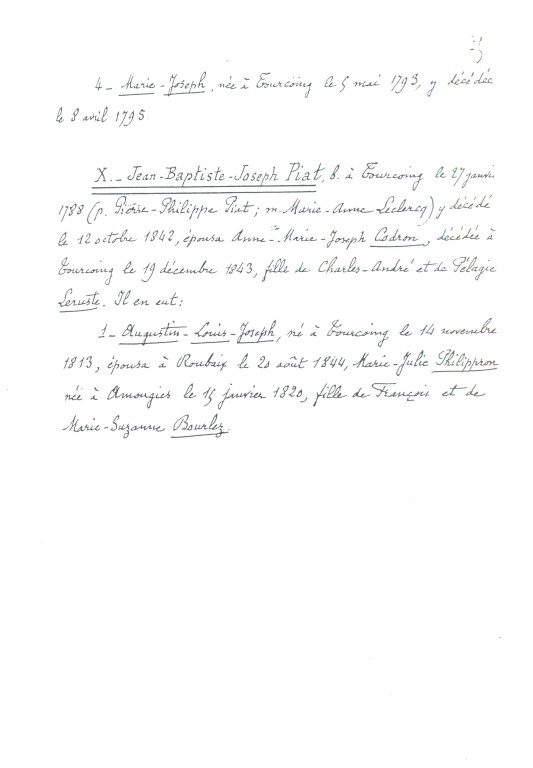 4 - Marie-Joseph, née à Tourcoing le 5 mai 1793, y décédée
le 8 avril 1795.
X. - Jean-Baptiste-Joseph Piat, b. à Tourcoing le 27 janv.
1788 (p. Pierre-Philippe Piat ; m. Marie-Anne Leclercq) y décédé
le 12 octobre 1842, épousa Anne-Marie-Joseph Codron, décédée à
Tourcoing le 19 décembre 1843, fille de Charles-André et de Pélagie
Leruste. Il en eut :
1 - Augustin-Louis-Joseph, né à Tourcoing le 14 novembre
1813, épousa à Roubaix le 20 août 1844, Marie-Julie Philippron
née à Amougies le 15 janvier 1820, fille de François et de
Marie-Suzanne Bourlez.